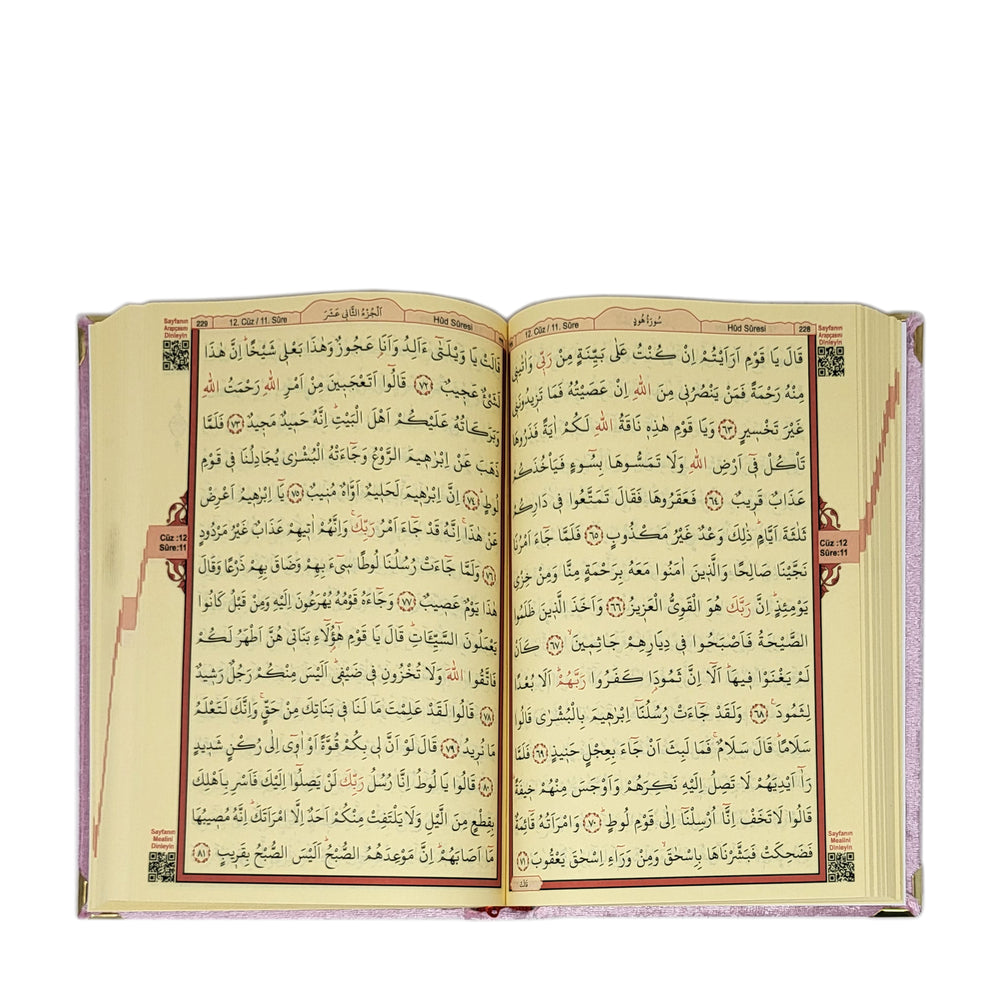 Sayfanın
Arapçasını
Dinleyin
228
Hûd Sûresi
سُورَةُ هُودٍ
12. Cüz / 11. Sûre
قَالَ يَا قَوْمِ اَرَاَيْتُمْ اِنْ كُنْتُ عَلٰى بَيِّنَةٍ مِنْ رَبّ۪ي وَاٰتٰين۪ي
مِنْهُ رَحْمَةً فَمَنْ يَنْصُرُن۪ي مِنَ اللّٰهِ اِنْ عَصَيْتُهُ فَمَا تَز۪يدُونَن۪ي
غَيْرَ تَخْس۪يرٍ ﴿٦٣﴾ وَيَا قَوْمِ هٰذِه۪ نَاقَةُ اللّٰهِ لَكُمْ اٰيَةً فَذَرُوهَا
تَأْكُلْ ف۪ٓي اَرْضِ اللّٰهِ وَلَا تَمَسُّوهَا بِسُٓوءٍ فَيَأْخُذَكُمْ
عَذَابٌ قَر۪يبٌ ﴿٦٤﴾ فَعَقَرُوهَا فَقَالَ تَمَتَّعُوا ف۪ي دَارِكُمْ
ثَلٰثَةَ اَيَّامٍۜ ذٰلِكَ وَعْدٌ غَيْرُ مَكْذُوبٍ ﴿٦٥﴾ فَلَمَّا جَٓاءَ اَمْرُنَا
نَجَّيْنَا صَالِحًا وَالَّذ۪ينَ اٰمَنُوا مَعَهُ بِرَحْمَةٍ مِنَّا وَمِنْ خِزْيِ
يَوْمِئِذٍۜ اِنَّ رَبَّكَ هُوَ الْقَوِيُّ الْعَز۪يزُ ﴿٦٦﴾ وَاَخَذَ الَّذ۪ينَ ظَلَمُوا
الصَّيْحَةُ فَاَصْبَحُوا ف۪ي دِيَارِهِمْ جَاثِم۪ينَۙ ﴿٦٧﴾ كَاَنْ
لَمْ يَغْنَوْا ف۪يهَاۜ اَلَٓا اِنَّ ثَمُودَا۬ كَفَرُوا رَبَّهُمْۜ اَلَا بُعْدًا
لِثَمُودَ۟ ﴿٦٨﴾ وَلَقَدْ جَٓاءَتْ رُسُلُنَٓا اِبْرٰه۪يمَ بِالْبُشْرٰى قَالُوا
سَلَامًاۜ قَالَ سَلَامٌ فَمَا لَبِثَ اَنْ جَٓاءَ بِعِجْلٍ حَن۪يذٍ ﴿٦٩﴾ فَلَمَّا
رَآٰ اَيْدِيَهُمْ لَا تَصِلُ اِلَيْهِ نَكِرَهُمْ وَاَوْجَسَ مِنْهُمْ خ۪يفَةًۜ
قَالُوا لَا تَخَفْ اِنَّٓا اُرْسِلْنَٓا اِلٰى قَوْمِ لُوطٍۜ ﴿٧٠﴾ وَامْرَاَتُهُ قَٓائِمَةٌ
فَضَحِكَتْ فَبَشَّرْنَاهَا بِاِسْحٰقَۙ وَمِنْ وَرَٓاءِ اِسْحٰقَ يَعْقُوبَ ﴿٧١﴾
Cüz :12
Sûre:11
Sayfanın
Mealini
Dinleyin
Sayfanın
Arapçasını
Dinleyin
229
12. Cüz / 11. Sûre
اَلْجُزْءُ الثَّانِي عَشَرَ
Hûd Sûresi
قَالَتْ يَا وَيْلَتٰٓى ءَاَلِدُ وَاَنَا۬ عَجُوزٌ وَهٰذَا بَعْل۪ي شَيْخًاۜ اِنَّ هٰذَا
لَشَيْءٌ عَج۪يبٌ ﴿٧٢﴾ قَالُٓوا اَتَعْجَب۪ينَ مِنْ اَمْرِ اللّٰهِ رَحْمَتُ اللّٰهِ
وَبَرَكَاتُهُ عَلَيْكُمْ اَهْلَ الْبَيْتِۜ اِنَّهُ حَم۪يدٌ مَج۪يدٌ ﴿٧٣﴾ فَلَمَّا
ذَهَبَ عَنْ اِبْرٰه۪يمَ الرَّوْعُ وَجَٓاءَتْهُ الْبُشْرٰى يُجَادِلُنَا ف۪ي قَوْمِ
لُوطٍۜ ﴿٧٤﴾ اِنَّ اِبْرٰه۪يمَ لَحَل۪يمٌ اَوَّاهٌ مُن۪يبٌ ﴿٧٥﴾ يَٓا اِبْرٰه۪يمُ اَعْرِضْ
عَنْ هٰذَاۚ اِنَّهُ قَدْ جَٓاءَ اَمْرُ رَبِّكَۚ وَاِنَّهُمْ اٰت۪يهِمْ عَذَابٌ غَيْرُ مَرْدُودٍ
﴿٧٦﴾ وَلَمَّا جَٓاءَتْ رُسُلُنَا لُوطًا س۪ٓيءَ بِهِمْ وَضَاقَ بِهِمْ ذَرْعًا وَقَالَ
هٰذَا يَوْمٌ عَص۪يبٌ ﴿٧٧﴾ وَجَٓاءَهُ قَوْمُهُ يُهْرَعُونَ اِلَيْهِ وَمِنْ قَبْلُ كَانُوا
يَعْمَلُونَ السَّيِّـَٔاتِۜ قَالَ يَا قَوْمِ هٰٓؤُ۬لَٓاءِ بَنَات۪ي هُنَّ اَطْهَرُ لَكُمْ
فَاتَّقُوا اللّٰهَ وَلَا تُخْزُونِ ف۪ي ضَيْف۪يۜ اَلَيْسَ مِنْكُمْ رَجُلٌ رَش۪يدٌ
﴿٧٨﴾ قَالُوا لَقَدْ عَلِمْتَ مَا لَنَا ف۪ي بَنَاتِكَ مِنْ حَقٍّۚ وَاِنَّكَ لَتَعْلَمُ
مَا نُر۪يدُ ﴿٧٩﴾ قَالَ لَوْ اَنَّ ل۪ي بِكُمْ قُوَّةً اَوْ اٰو۪ٓي اِلٰى رُكْنٍ شَد۪يدٍ
﴿٨٠﴾ قَالُوا يَا لُوطُ اِنَّا رُسُلُ رَبِّكَ لَنْ يَصِلُٓوا اِلَيْكَ فَاَسْرِ بِاَهْلِكَ
بِقِطْعٍ مِنَ الَّيْلِ وَلَا يَلْتَفِتْ مِنْكُمْ اَحَدٌ اِلَّا امْرَاَتَكَۜ اِنَّهُ مُص۪يبُهَا
مَٓا اَصَابَهُمْۜ اِنَّ مَوْعِدَهُمُ الصُّبْحُۜ اَلَيْسَ الصُّبْحُ بِقَر۪يبٍ ﴿٨١﴾
Cüz :12
Sûre:11
Sayfanın
Mealini
Dinleyin